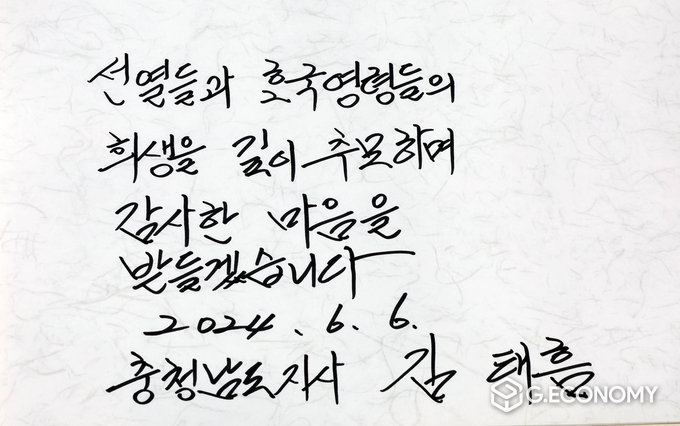 선열들과 호국영령들의
희생을 깊이 추모하며
감사한 마음을
받들겠습니다
2024. 6. 6.
충청남도지사 김태흠
G.ECONOMY